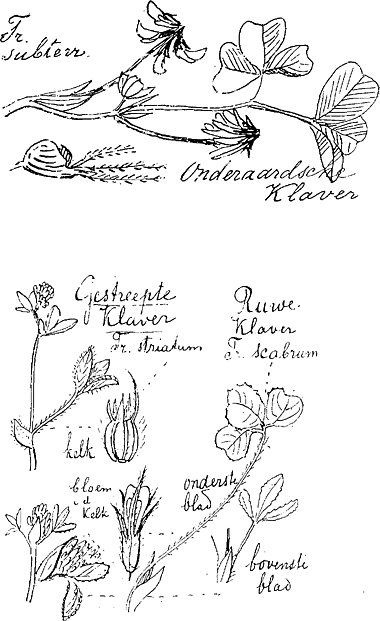 Tr.
subterr.
Onderaardsche
Klaver
Gestreepte
Klaver
Tr. striatum
Ruwe
Klaver
Tr. scabrum
kelk
bloem
i d
kelk
onderste
blad
bovenste
blad